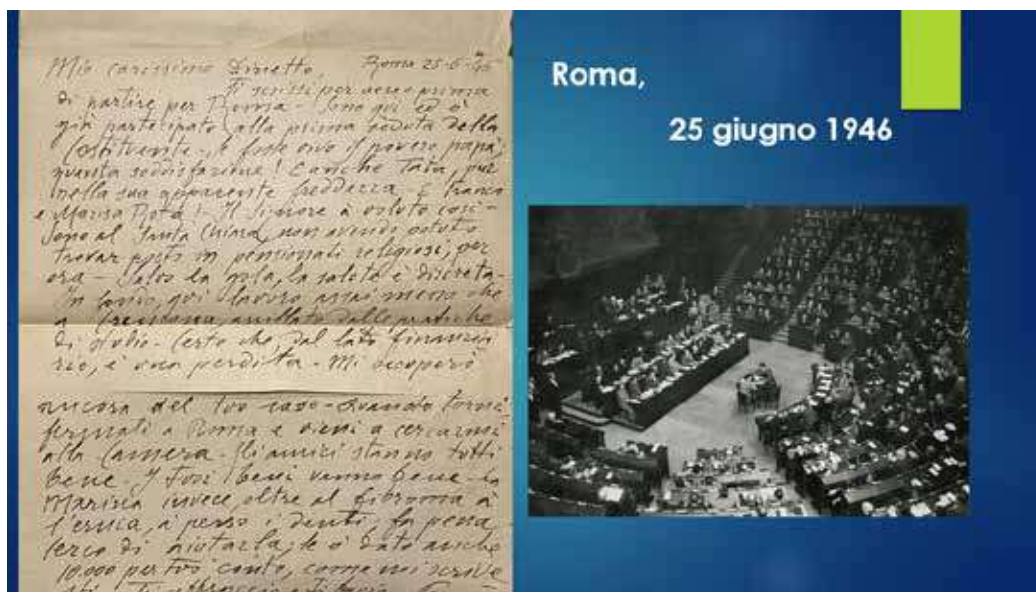 Mio carissimo Dinetto, Roma 25-6-46
Ti scrissi per aereo prima
di partire per Roma - Sono qui ed ò
già partecipato alla prima seduta della
Costituente -, e fosse vivo il povero papà,
quanta soddisfazione! E anche Tata, pur
nella sua apparente freddezza, e Franco
e Marisa Il Signore à voluto così -
Sono al Santa Chiara, non avendo potuto
trovar posto in pensionati religiosi, per
ora - Salvo la gola, la salute è discreta -
In fondo, qui lavoro assai meno che
a Cremona, dalle pratiche
di studio - Certo che, dal lato finanzia
rio, è una perdita - Mi occuperò
ancora del tuo caso - Quando torni,
fermati a Roma e vieni a cercarmi
alla Camera - Gli amici stanno tutti
bene - I tuoi beni vanno bene - La
Marisa invece, oltre al fibroma à
l'ernia, à perso i denti, fa pena,
cerco di aiutarla, le ò dato anche
10.000 per tuo conto, come mi scrive
Roma,
25 giugno 1946